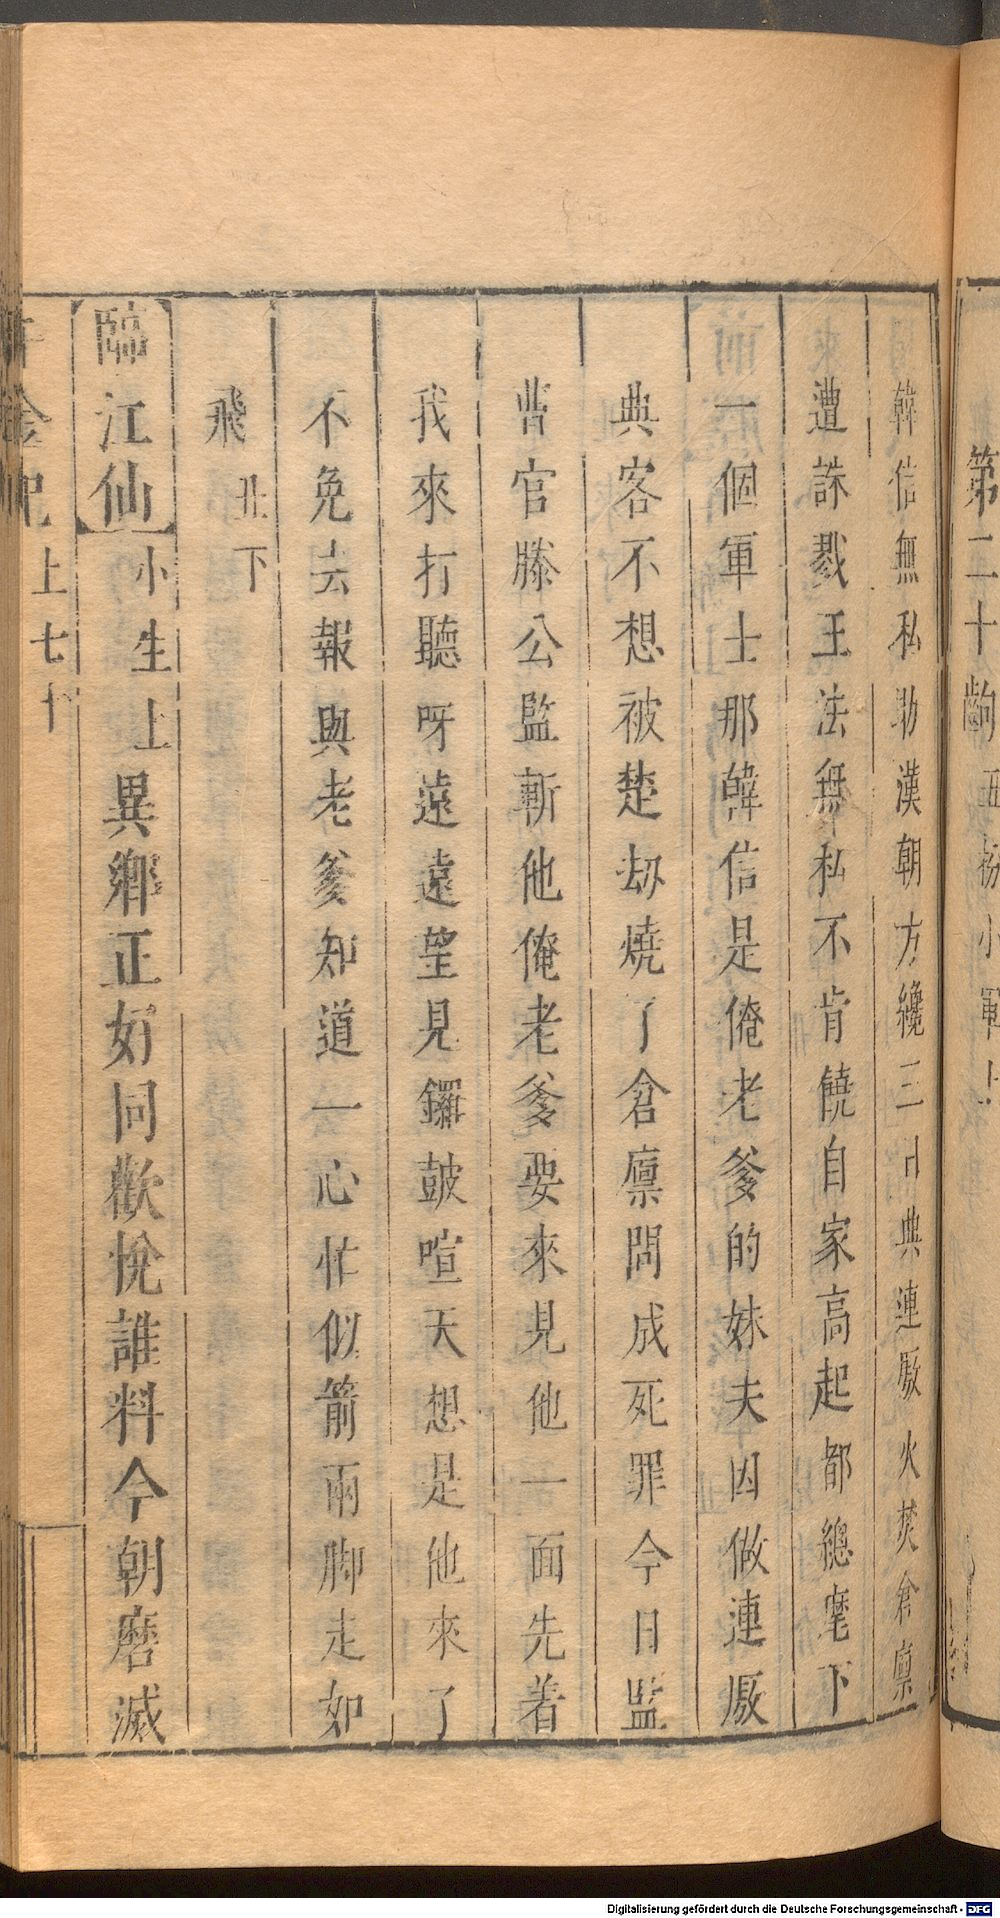 第二十齣
韓信無私助漢朝方纔三日典連厫火焚倉廪
遭誅戮王法無私不肯饒自家高起都總麾下
一個軍士那韓信是俺老爹的妹夫因做連厫
典客不想被楚刼燒了倉廪問成死罪今日監
斬官滕公監斬他俺老爹要來見他一面先着
我來打聽呀遠遠望見鑼皷喧天想是他來了
不免去報與老爹知道一心忙似箭兩脚走如
飛丑下
臨江仙小生上異鄉正好同歡悅誰料今朝磨滅
千金記上七十
Digitalisierung gefördert durch die Deutsche Forschungsgemeinschaft - DFG